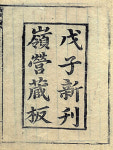 戊子新刊
嶺營藏板